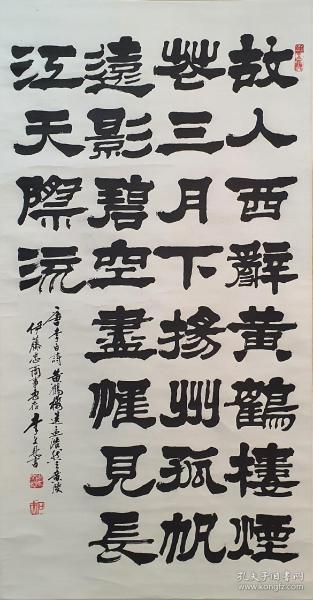 故人西辭黃鶴樓煙
花三月下揚州孤帆
遠影碧空盡惟見長
江天際流
唐李白詩黃鶴樓送孟浩然之廣陵
伊藤忠商事惠存 李文書
孔夫子旧书网